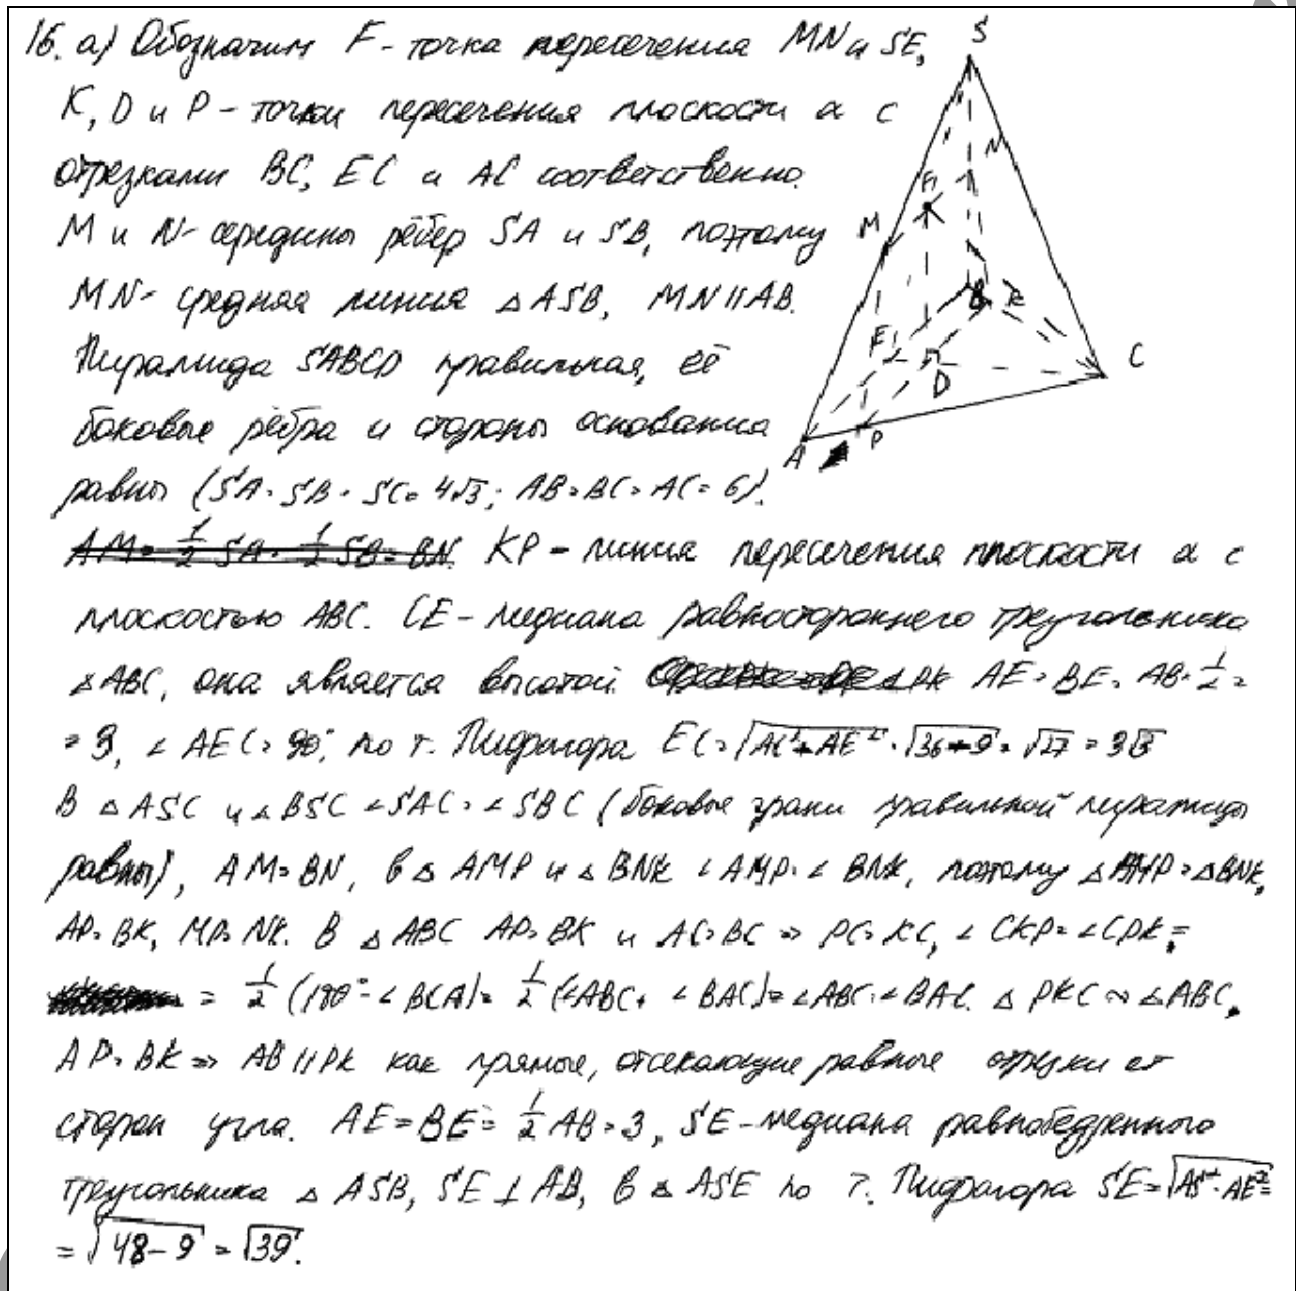 16. а) Обозначим F - точка пересечения MN и SE,
K, D и P - точки пересечения плоскости α с
отрезками BC, EC и AC соответственно.
M и N - середины рёбер SA и SB, поэтому
MN - средняя линия △ASB, MN || AB.
Пирамида SABCD правильная, её
боковые рёбра и стороны основания
равны (SA = SB = SC = 4√3; AB = BC = AC = 6).
AM = 1/2 SA = 1/2 SB = BN. KP - линия пересечения плоскости α с
плоскостью ABC. CE - медиана равностороннего треугольника
△ABC, она является высотой. AE = BE = AB · 1/2 =
= 3, ∠AEC = 90°, по т. Пифагора EC = √AC² - AE² = √36 - 9 = √27 = 3√3
В △ASC и △BSC ∠SAC = ∠SBC (боковые грани правильной пирамиды
равны), AM = BN, в △AMP и △BNK ∠AMP = ∠BNK, поэтому △AMP = △BNK,
AP = BK, MP = NK. В △ABC AP = BK и AC = BC => PC = KC, ∠CKP = ∠CPK =
= 1/2 (180° - ∠BCA) = 1/2 (∠ABC + ∠BAC) = ∠ABC = ∠BAC. △PKC ∾ △ABC,
AP = BK => AB || PK как прямые, отсекающие равные отрезки от
сторон угла. AE = BE = 1/2 AB = 3, SE - медиана равнобедренного
треугольника △ASB, SE ⊥ AB, в △ASE по т. Пифагора SE = √AS² - AE² =
= √48 - 9 = √39.
S
N
F
M
B
K
E
D
C
A
P